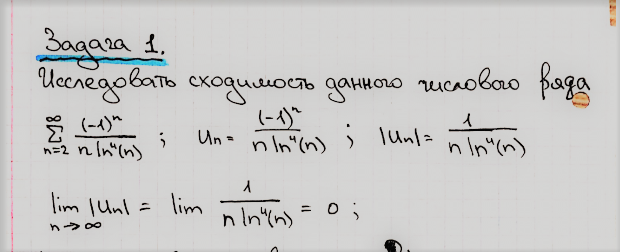 Задача 1.
Исследовать сходимость данного числового ряда
∑_{n=2}^{∞} (-1)^n / (n ln⁴(n)) ; Un = (-1)^n / (n ln⁴(n)) ; |Un| = 1 / (n ln⁴(n))
lim_{n→∞} |Un| = lim 1 / (n ln⁴(n)) = 0 ;